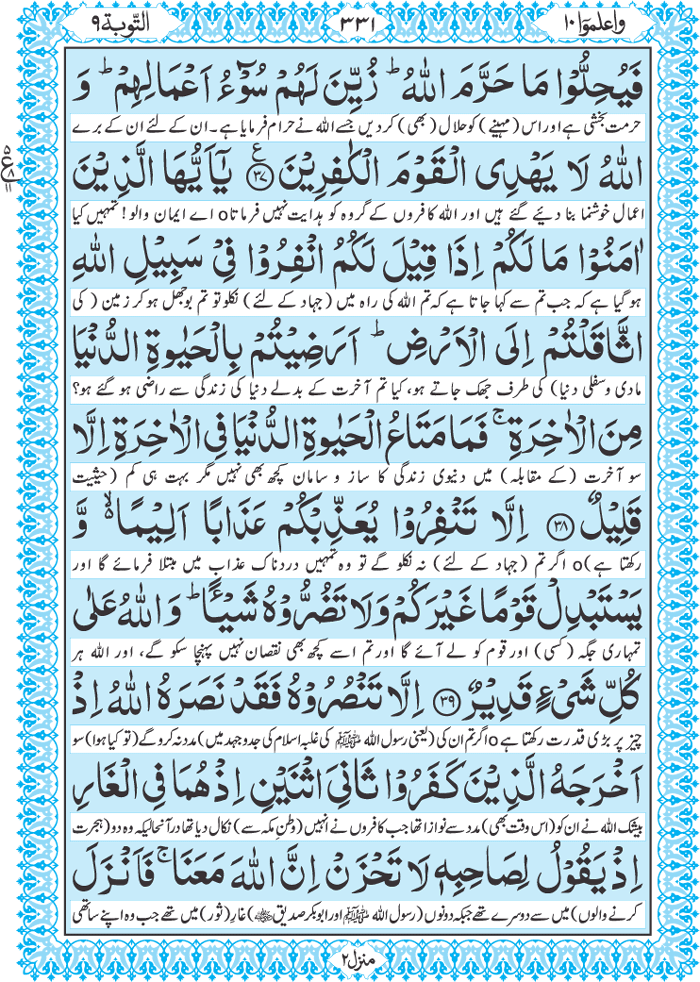 واعلموٓا ١٠ ٣٣١ التّوبة ٩
فَيُحِلُّوْا مَا حَرَّمَ اللّٰهُ ؕ زُيِّنَ لَهُمْ سُوْٓءُ اَعْمَالِهِمْ ؕ وَ
حرمت بخشی ہے اور اس (مہینے) کو حلال (بھی) کر دیں جسے اللہ نے حرام فرمایا ہے۔ ان کے لئے ان کے برے
اللّٰهُ لَا يَهْدِى الْقَوْمَ الْكٰفِرِيْنَ ﴿٣٧﴾ يٰۤاَيُّهَا الَّذِيْنَ
اعمال خوشنما بنا دیئے گئے ہیں اور اللہ کافروں کے گروہ کو ہدایت نہیں فرماتا o اے ایمان والو! تمہیں کیا
اٰمَنُوْا مَا لَكُمْ اِذَا قِيْلَ لَكُمُ انْفِرُوْا فِىْ سَبِيْلِ اللّٰهِ
ہو گیا ہے کہ جب تم سے کہا جاتا ہے کہ تم اللہ کی راہ میں (جہاد کے لئے) نکلو تو تم بوجھل ہو کر زمین (کی
اثَّاقَلْتُمْ اِلَى الْاَرْضِ ؕ اَرَضِيْتُمْ بِالْحَيٰوةِ الدُّنْيَا
مادی و سفلی دنیا) کی طرف جھک جاتے ہو، کیا تم آخرت کے بدلے دنیا کی زندگی سے راضی ہو گئے ہو؟
مِنَ الْاٰخِرَةِ ۚ فَمَا مَتَاعُ الْحَيٰوةِ الدُّنْيَا فِى الْاٰخِرَةِ اِلَّا
سو آخرت (کے مقابلہ) میں دنیوی زندگی کا ساز و سامان کچھ بھی نہیں مگر بہت ہی کم (حیثیت
قَلِيْلٌ ﴿٣٨﴾ اِلَّا تَنْفِرُوْا يُعَذِّبْكُمْ عَذَابًا اَلِيْمًا ۙ وَّ
رکھتا ہے) o اگر تم (جہاد کے لئے) نہ نکلو گے تو وہ تمہیں دردناک عذاب میں مبتلا فرمائے گا اور
يَسْتَبْدِلْ قَوْمًا غَيْرَكُمْ وَلَا تَضُرُّوْهُ شَيْـًٔا ؕ وَاللّٰهُ عَلٰى
تمہاری جگہ (کسی) اور قوم کو لے آئے گا اور تم اسے کچھ بھی نقصان نہیں پہنچا سکو گے، اور اللہ ہر
كُلِّ شَىْءٍ قَدِيْرٌ ﴿٣٩﴾ اِلَّا تَنْصُرُوْهُ فَقَدْ نَصَرَهُ اللّٰهُ اِذْ
چیز پر بڑی قدرت رکھتا ہے o اگر تم ان کی (یعنی رسول اللہ ﷺ کی غلبہ اسلام کی جدوجہد میں) مدد نہ کرو گے (تو کیا ہوا) سو
اَخْرَجَهُ الَّذِيْنَ كَفَرُوْا ثَانِىَ اثْنَيْنِ اِذْ هُمَا فِى الْغَارِ
بیشک اللہ نے ان کو (اس وقت بھی) مدد سے نوازا تھا جب کافروں نے انہیں (وطنِ مکہ سے) نکال دیا تھا درآنحالیکہ وہ دو (ہجرت
اِذْ يَقُوْلُ لِصَاحِبِهٖ لَا تَحْزَنْ اِنَّ اللّٰهَ مَعَنَا ۚ فَاَنْزَلَ
کرنے والوں) میں سے دوسرے تھے جبکہ دونوں (رسول اللہ ﷺ اور ابوبکر صدیق ؓ) غارِ (ثور) میں تھے جب وہ اپنے ساتھی
منزل ٢